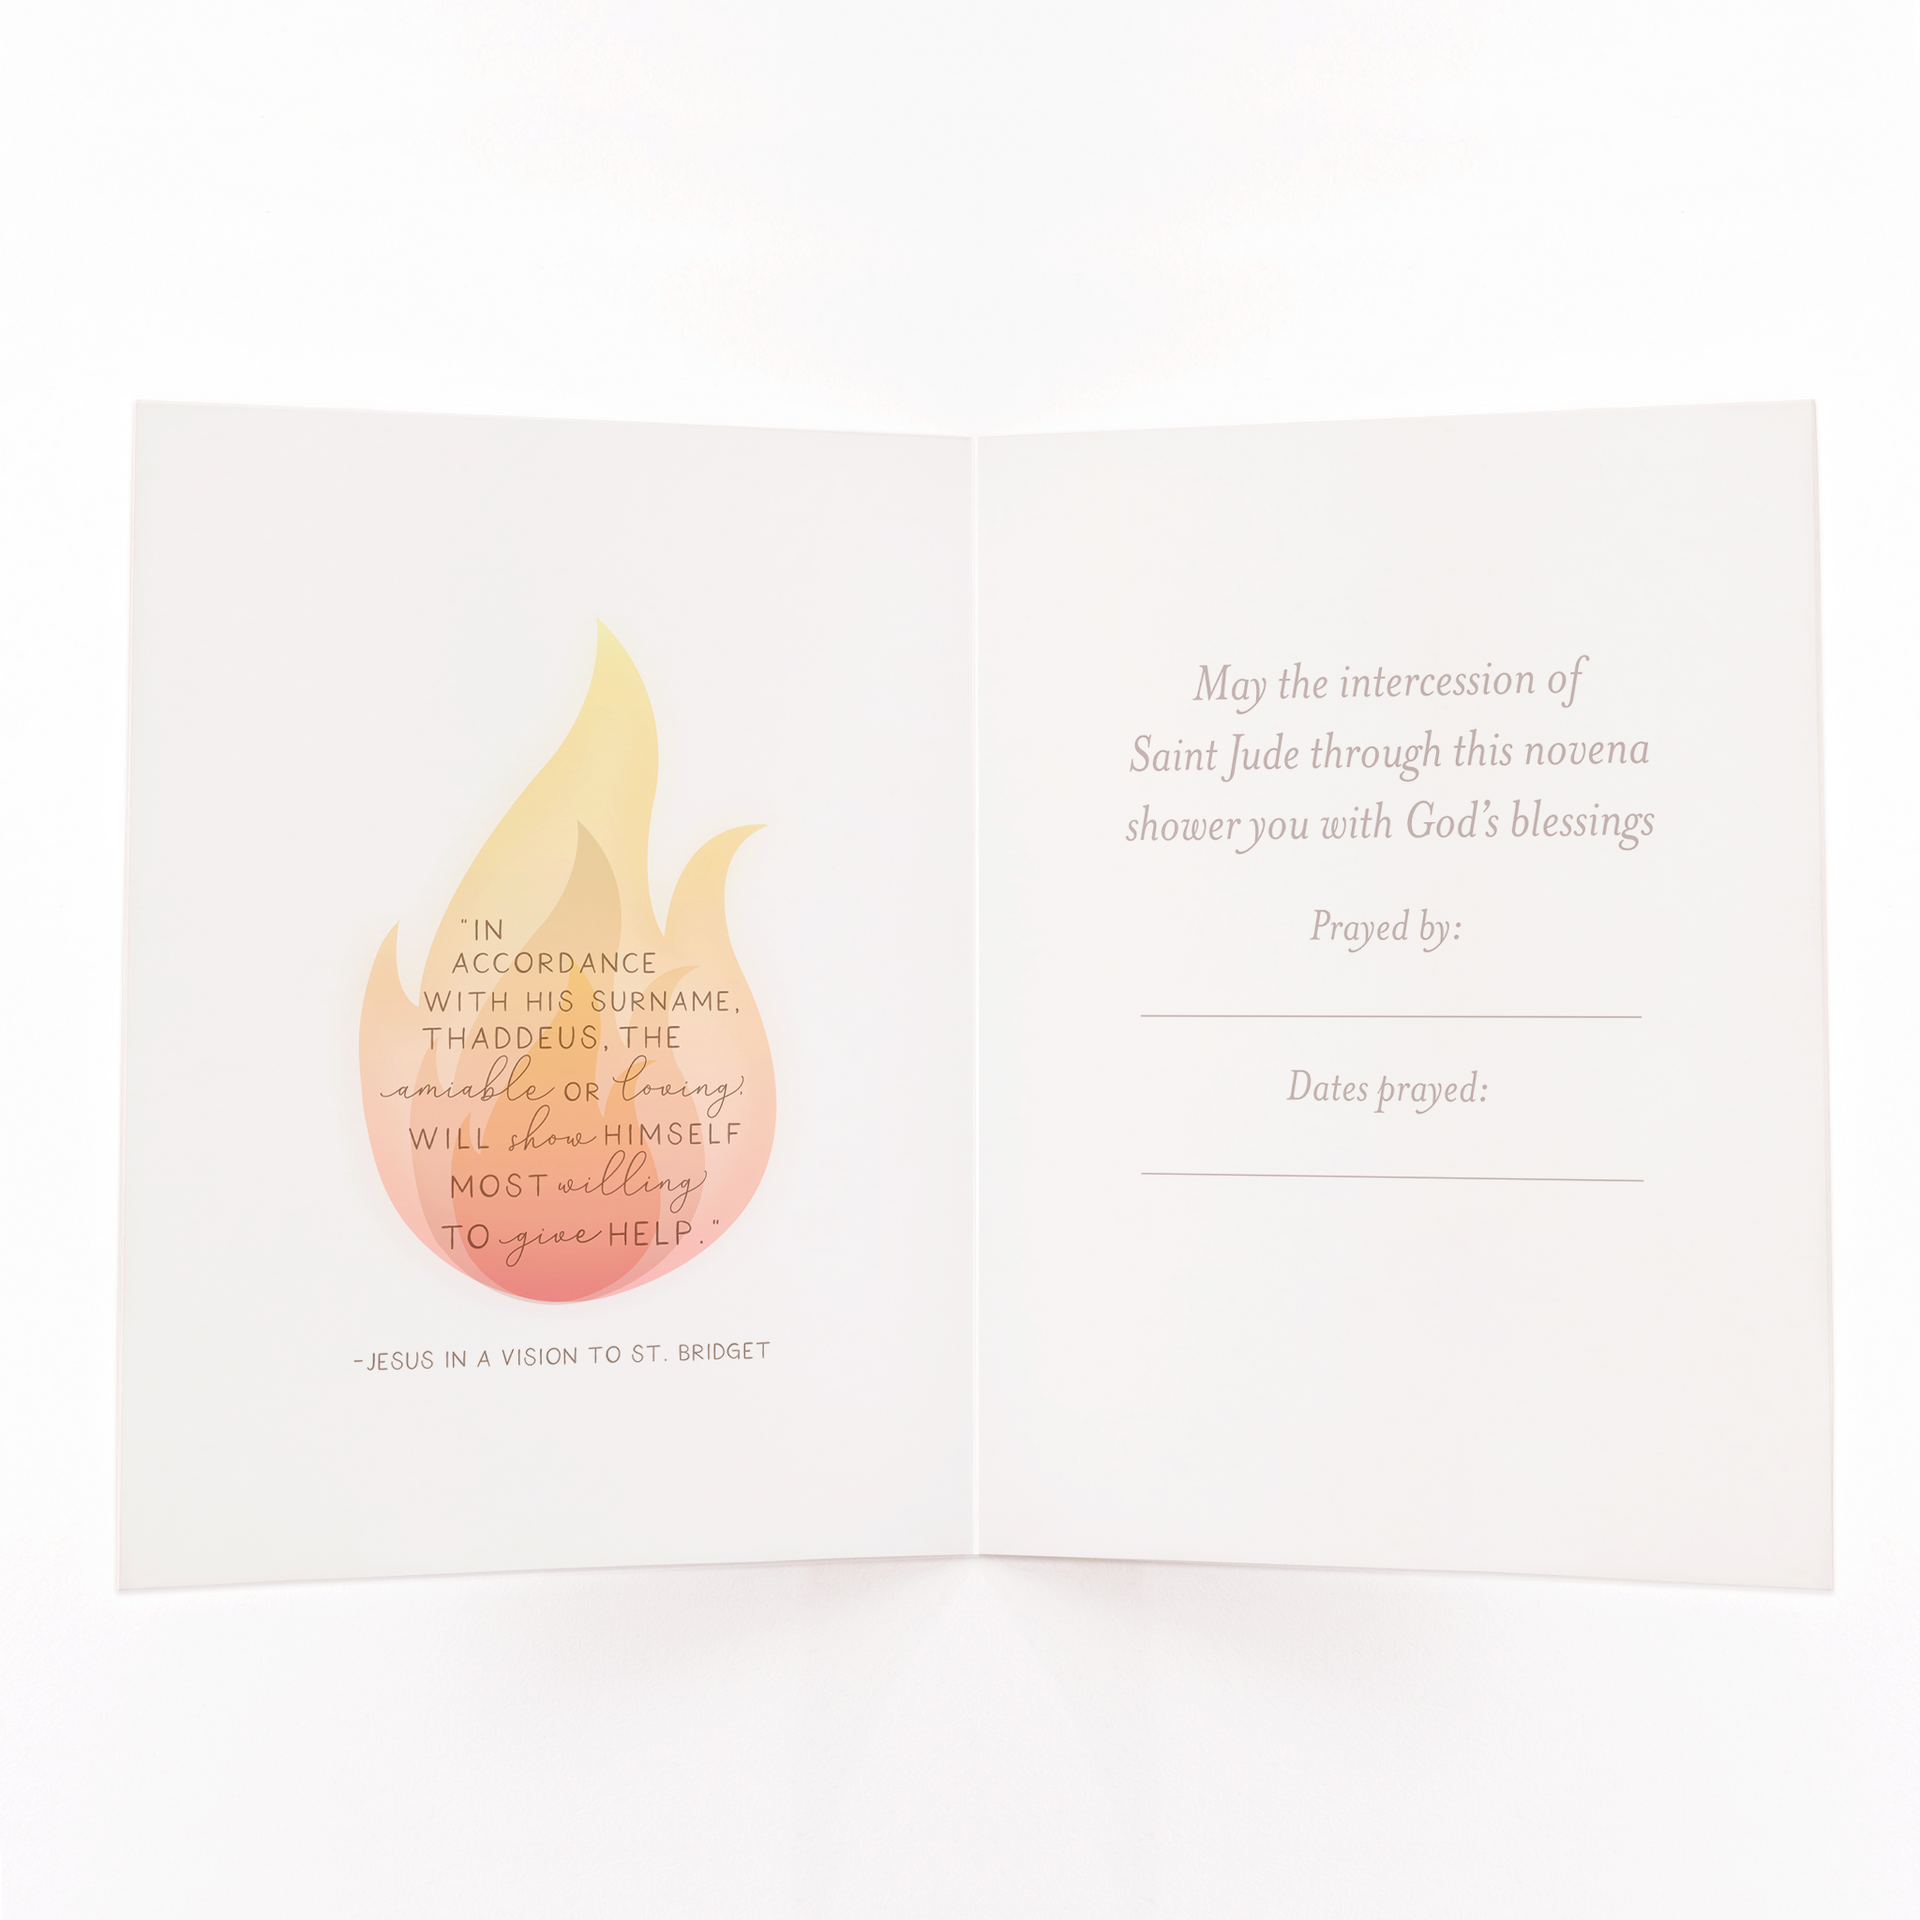 "IN
ACCORDANCE
WITH HIS SURNAME,
THADDEUS, THE
amiable OR loving,
WILL show HIMSELF
MOST willing
TO give HELP."
-JESUS IN A VISION TO ST. BRIDGET
May the intercession of
Saint Jude through this novena
shower you with God's blessings
Prayed by:
Dates prayed: